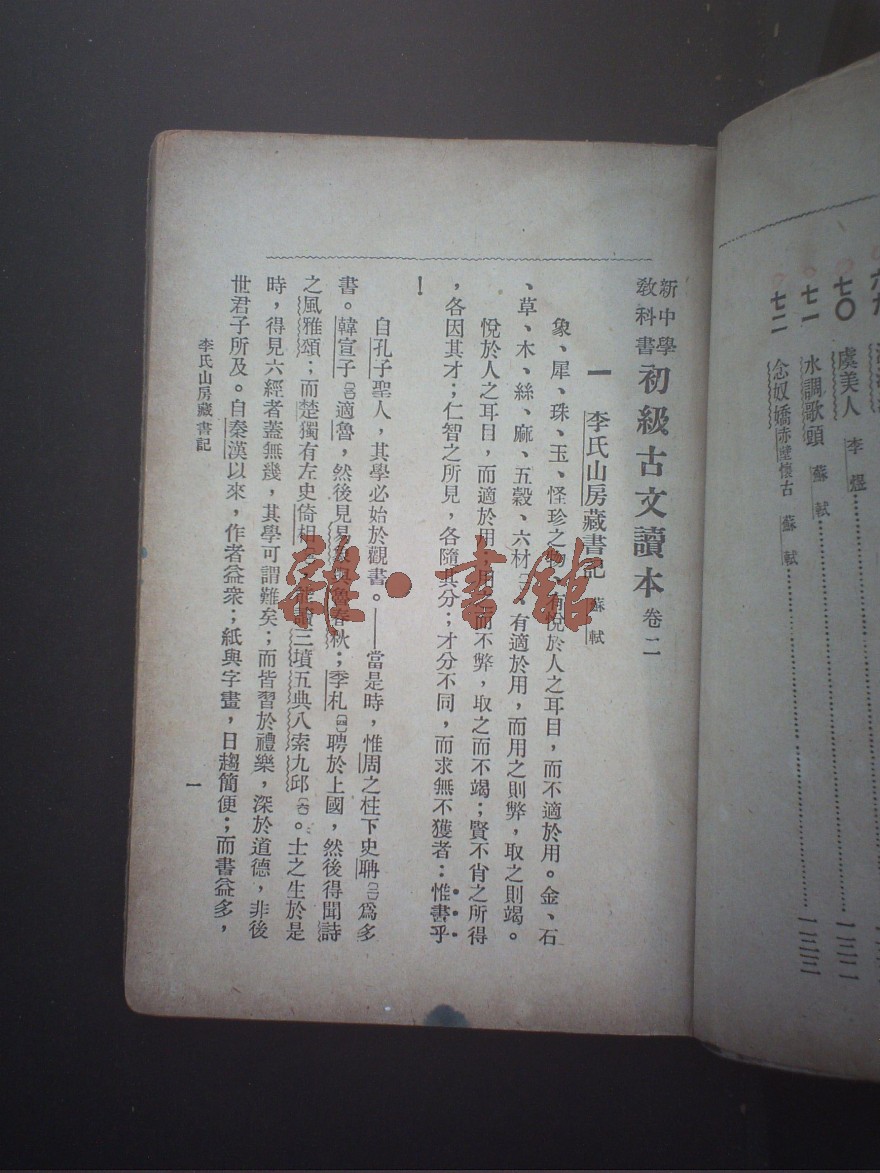 六九
七〇 虞美人 李煜
七一 水調歌頭 蘇軾 一三二
七二 念奴嬌赤壁懷古 蘇軾 一三三
新中學
教科書
初級古文讀本 卷二
一 李氏山房藏書記 蘇軾
象、犀、珠、玉、怪珍之物，有悅於人之耳目，而不適於用。金、石
、草、木、絲、麻、五穀、六材〔一〕，有適於用，而用之則弊，取之則竭。
悅於人之耳目，而適於用；用之而不弊，取之而不竭；賢不肖之所得
，各因其才；仁智之所見，各隨其分；才分不同，而求無不獲者：惟書乎
！
自孔子聖人，其學必始於觀書。——當是時，惟周之柱下史聃〔二〕爲多
書。韓宣子〔三〕適魯，然後見易象與魯春秋；季札〔四〕聘於上國，然後得聞詩
之風雅頌；而楚獨有左史倚相，能讀三墳五典八索九邱〔六〕。士之生於是
時，得見六經者蓋無幾，其學可謂難矣；而皆習於禮樂，深於道德，非後
世君子所及。自秦漢以來，作者益衆；紙與字畫，日趨簡便；而書益多，
李氏山房藏書記
一
雜·書館